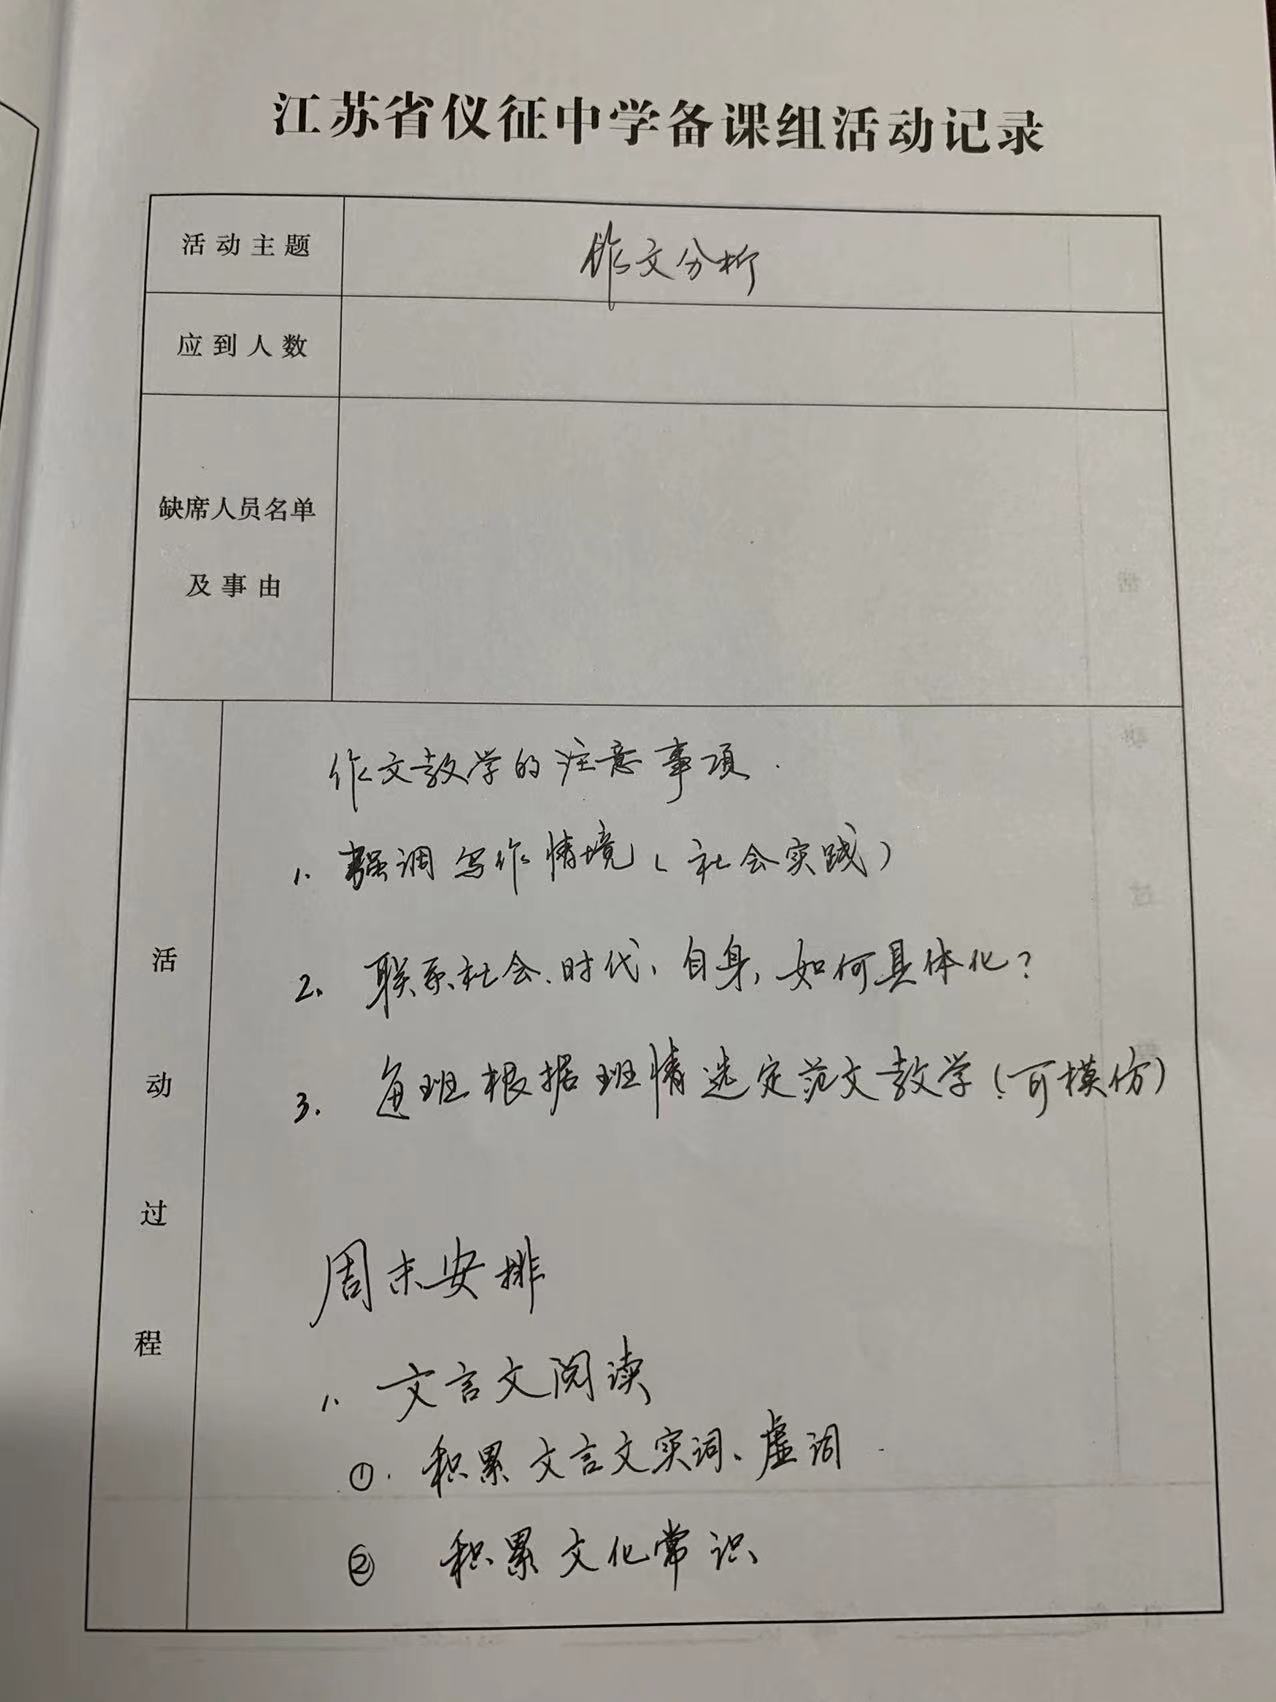 江苏省仪征中学备课组活动记录
活动主题
作文分析
应到人数
缺席人员名单
及事由
活动过程
作文教学的注意事项.
1. 强调写作情境（社会实践）
2. 联系社会、时代、自身，如何具体化？
3. 每班根据班情选定范文教学（可模仿）
周末安排
1. 文言文阅读
①. 积累文言文实词、虚词.
② 积累文化常识